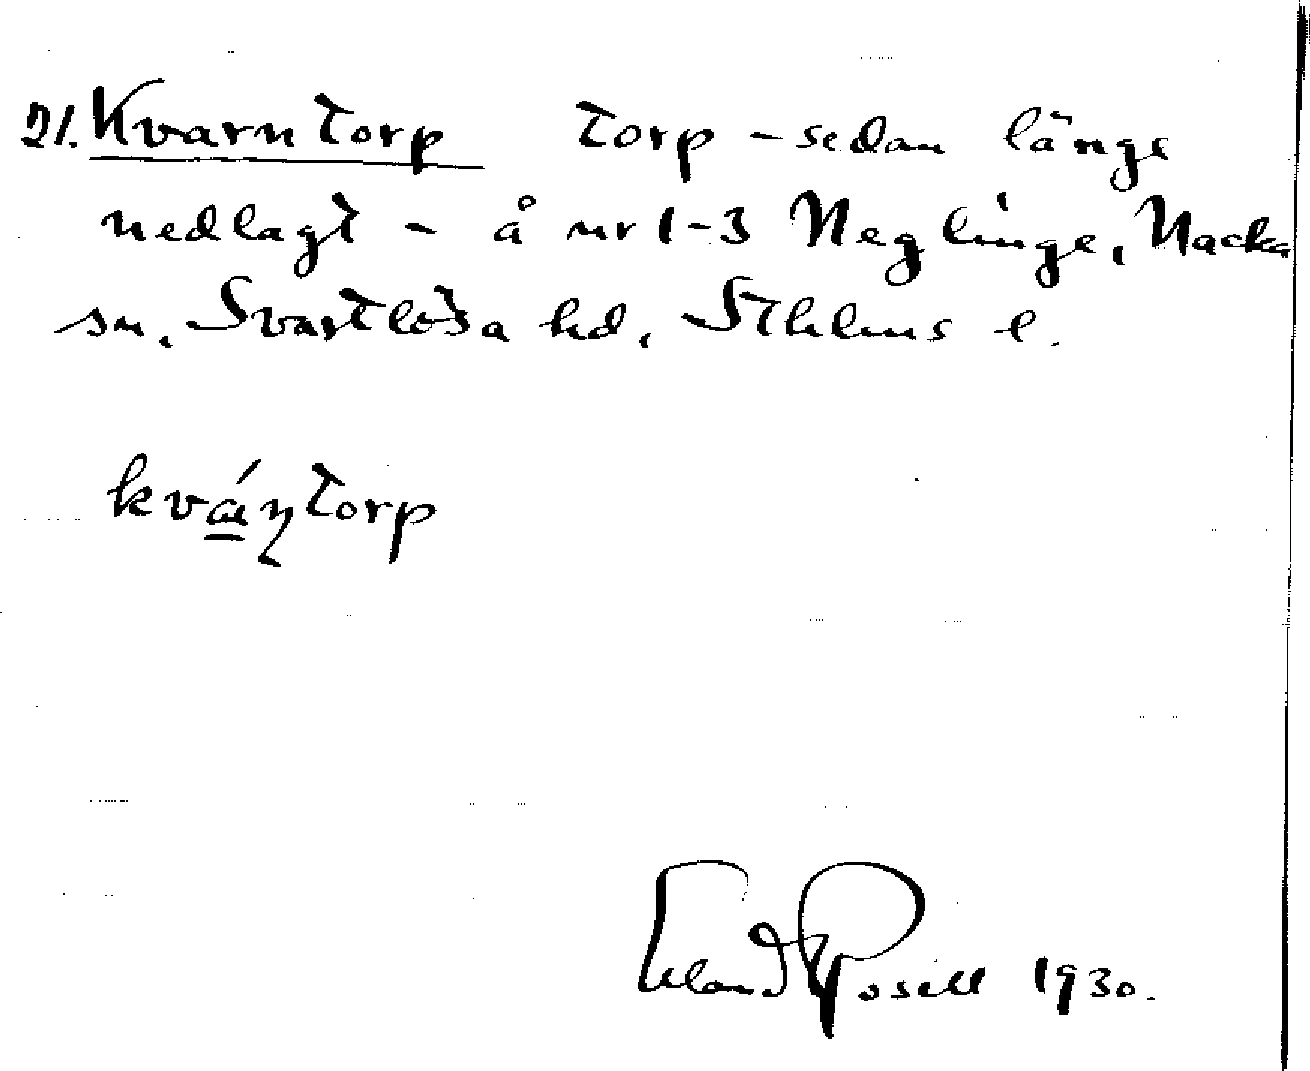 21. Kvarntorp torp - sedan länge
nedlagt - å nr 1-3 Neglinge, Nacka
sn, Svartlösa hd, Sthlms l.
kvάɳtorp
Erland Rosell 1930.